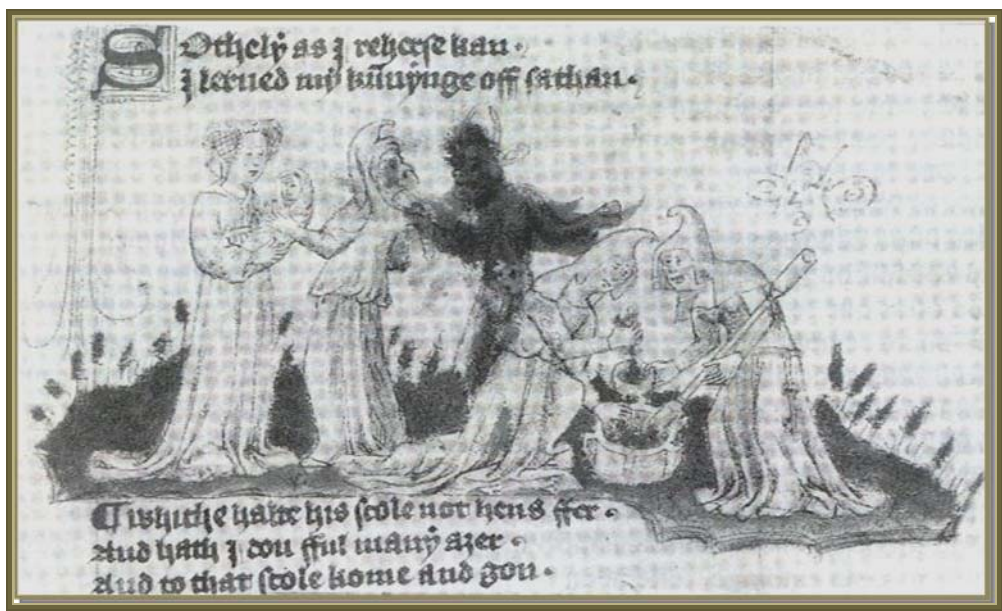 Sothely as I reherse kan
I lerned my kunnynge off sathan
whiche halte his scole not hens ffer
And hath I don fful many a yer
And to that scole kome and gon